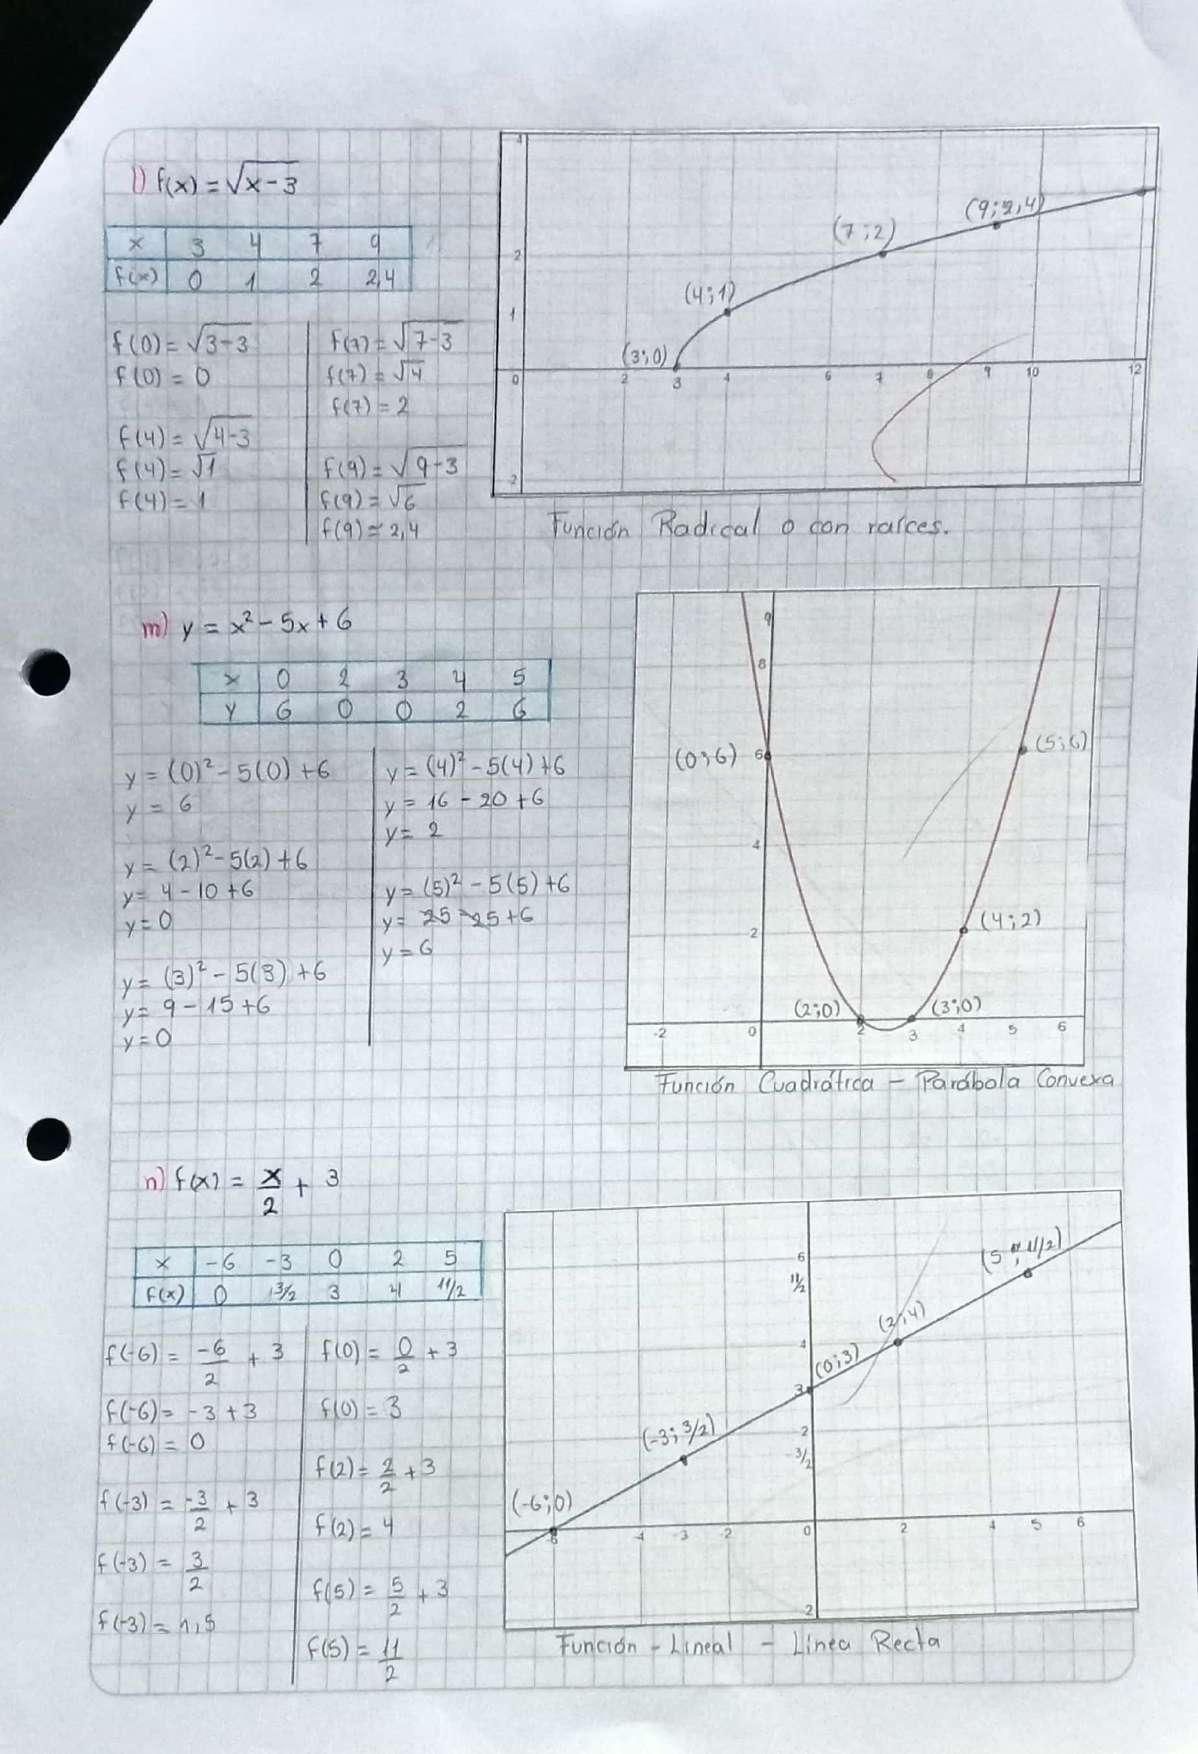 l) f(x) = √x-3
x 3 4 7 9
f(x) 0 1 2 2,4
f(0) = √3-3
f(0) = 0
f(4) = √4-3
f(4) = √1
f(4) = 1
f(7) = √7-3
f(7) = √4
f(7) = 2
f(9) = √9-3
f(9) = √6
f(9) = 2,4
4
2
1
0 2 3 4 6 7 8 9 10 12
-2
(3;0)
(4;1)
(7;2)
(9;2,4)
Función Radical o con raíces.
m) y = x² - 5x + 6
x 0 2 3 4 5
y 6 0 0 2 6
y = (0)² - 5(0) + 6
y = 6
y = (2)² - 5(2) + 6
y = 4 - 10 + 6
y = 0
y = (3)² - 5(3) + 6
y = 9 - 15 + 6
y = 0
y = (4)² - 5(4) + 6
y = 16 - 20 + 6
y = 2
y = (5)² - 5(5) + 6
y = 25 - 25 + 6
y = 6
9
8
(0;6) 6 (5;6)
4
2 (4;2)
(2;0) (3;0)
-2 0 2 3 4 5 6
Función Cuadrática - Parábola Convexa
n) f(x) = x/2 + 3
x -6 -3 0 2 5
f(x) 0 3/2 3 4 11/2
f(-6) = -6/2 + 3
f(-6) = -3 + 3
f(-6) = 0
f(-3) = -3/2 + 3
f(-3) = 3/2
f(-3) = 1,5
f(0) = 0/2 + 3
f(0) = 3
f(2) = 2/2 + 3
f(2) = 4
f(5) = 5/2 + 3
f(5) = 11/2
6 (5;11/2)
11/2
4 (2;4)
3 (0;3)
2 (-3;3/2)
3/2
(-6;0)
-6 -4 -3 -2 0 2 4 5 6
-2
Función - Lineal - Línea Recta